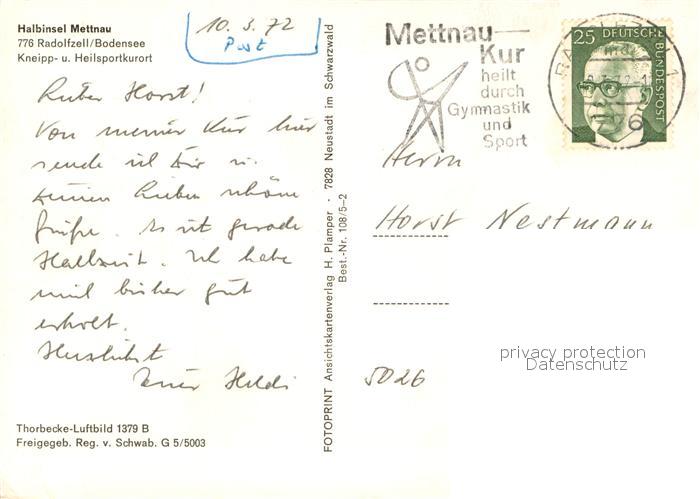 Halbinsel Mettnau
776 Radolfzell/Bodensee
Kneipp- u. Heilsportkurort
10. 3. 72
Post
Lieber Horst!
Von meiner Kur hier
sende ich Dir u.
Deinen Lieben schöne
Grüße. Es ist gerade
Halbzeit. Ich habe
mich bisher gut
erholt.
Herzlichst
Heldi
Thorbecke-Luftbild 1379 B
Freigegeb. Reg. v. Schwab. G 5/5003
FOTOPRINT Ansichtskartenverlag H. Plamper · 7828 Neustadt im Schwarzwald
Best.-Nr. 108/5-2
Mettnau
Kur
heilt
durch
Gymnastik
und
Sport
25 DEUTSCHE
BUNDESPOST
76
Herrn
Horst Nestmann
privacy protection
Datenschutz
5026